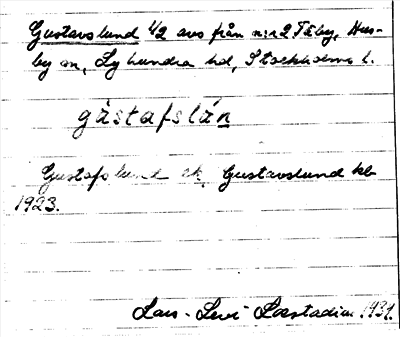 Gustavslund 1/2 avs från n:r 2 Täby, Hus-
by sn, Lyhundra hd, Stockholms l.
gåstafslán
Gustafslund ek, Gustavslund kb
1923.
Lars-Levi Læstadius 1934.